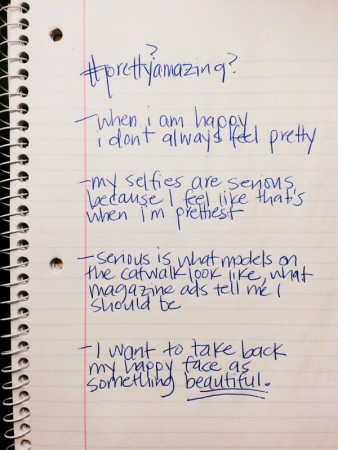 ?
#prettyamazing?
-when i am happy
i dont always feel pretty
-my selfies are serious
because I feel like that's
when i'm prettiest
-serious is what models on
the catwalk look like, what
magazine ads tell me I
should be
-I want to take back
my happy face as
something beautiful.